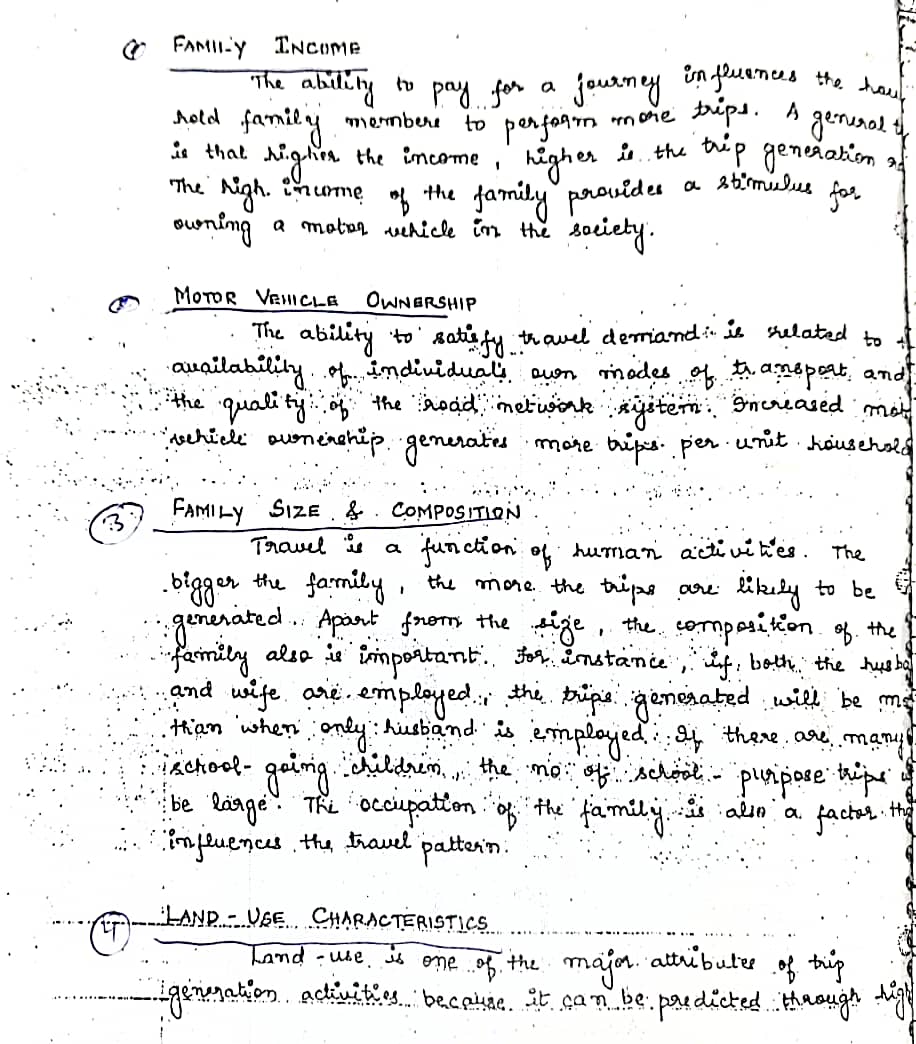 FAMILY INCOME
The ability to pay for a journey influences the hou
hold family members to perform more trips. A general
is that higher the income, higher is the trip generation
The high income of the family provides a stimulus for
owning a motor vehicle in the society.
MOTOR VEHICLE OWNERSHIP
The ability to satisfy travel demand is related to
availability of individual's own modes of transport, and
the quality of the road network system. Increased mot
vehicle ownership generates more trips per unit household
3 FAMILY SIZE & COMPOSITION
Travel is a function of human activities. The
bigger the family, the more the trips are likely to be
generated. Apart from the size, the composition of the
family also is important. For instance, if, both the husba
and wife are employed, the trips generated will be mo
than when only husband is employed. If there are many
school-going children, the no. of school-purpose trips
be large. The occupation of the family is also a factor tha
influences the travel pattern.
4 LAND-USE CHARACTERISTICS
Land-use is one of the major attributes of trip
generation activities because it can be predicted through high